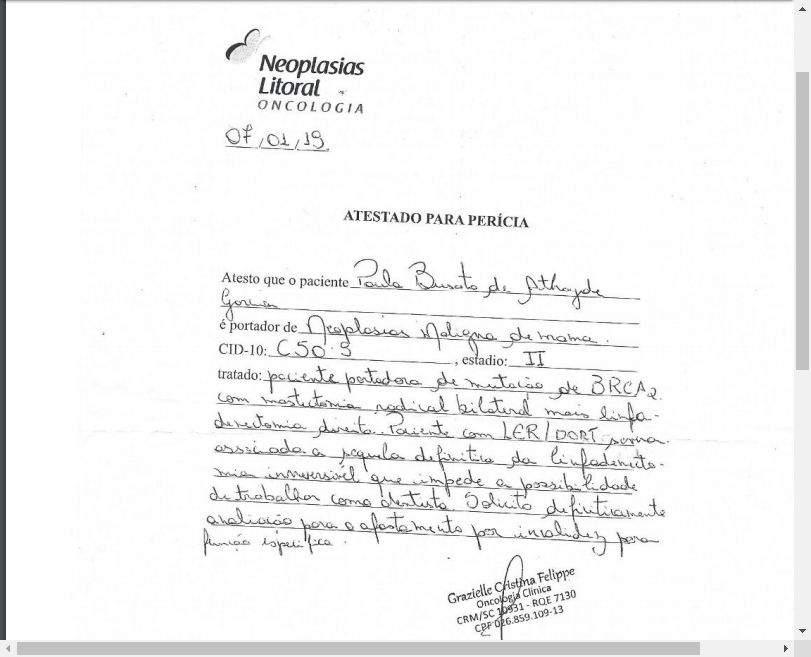 Neoplasias
Litoral
ONCOLOGIA
07/01/19
ATESTADO PARA PERÍCIA
Atesto que o paciente Paula Busato de Athayde
é portador de Neoplasias Maligna de mama.
CID-10: C50.9, estadio: II
tratado: paciente portadora de mutação de BRCA2
com mastectomia radical bilateral mais linfa-
denectomia direita. Paciente com LER/DORT
associada a sequela definitiva da linfadenecto-
mia irreversível que impede a possibilidade
de trabalhar como dentista. Solicito definitivamente
avaliação para o afastamento por invalidez para
função específica.
Grazielle Cristina Felippe
Oncologia Clínica
CRM/SC 10931 - RQE 7130
CPF 026.859.109-13